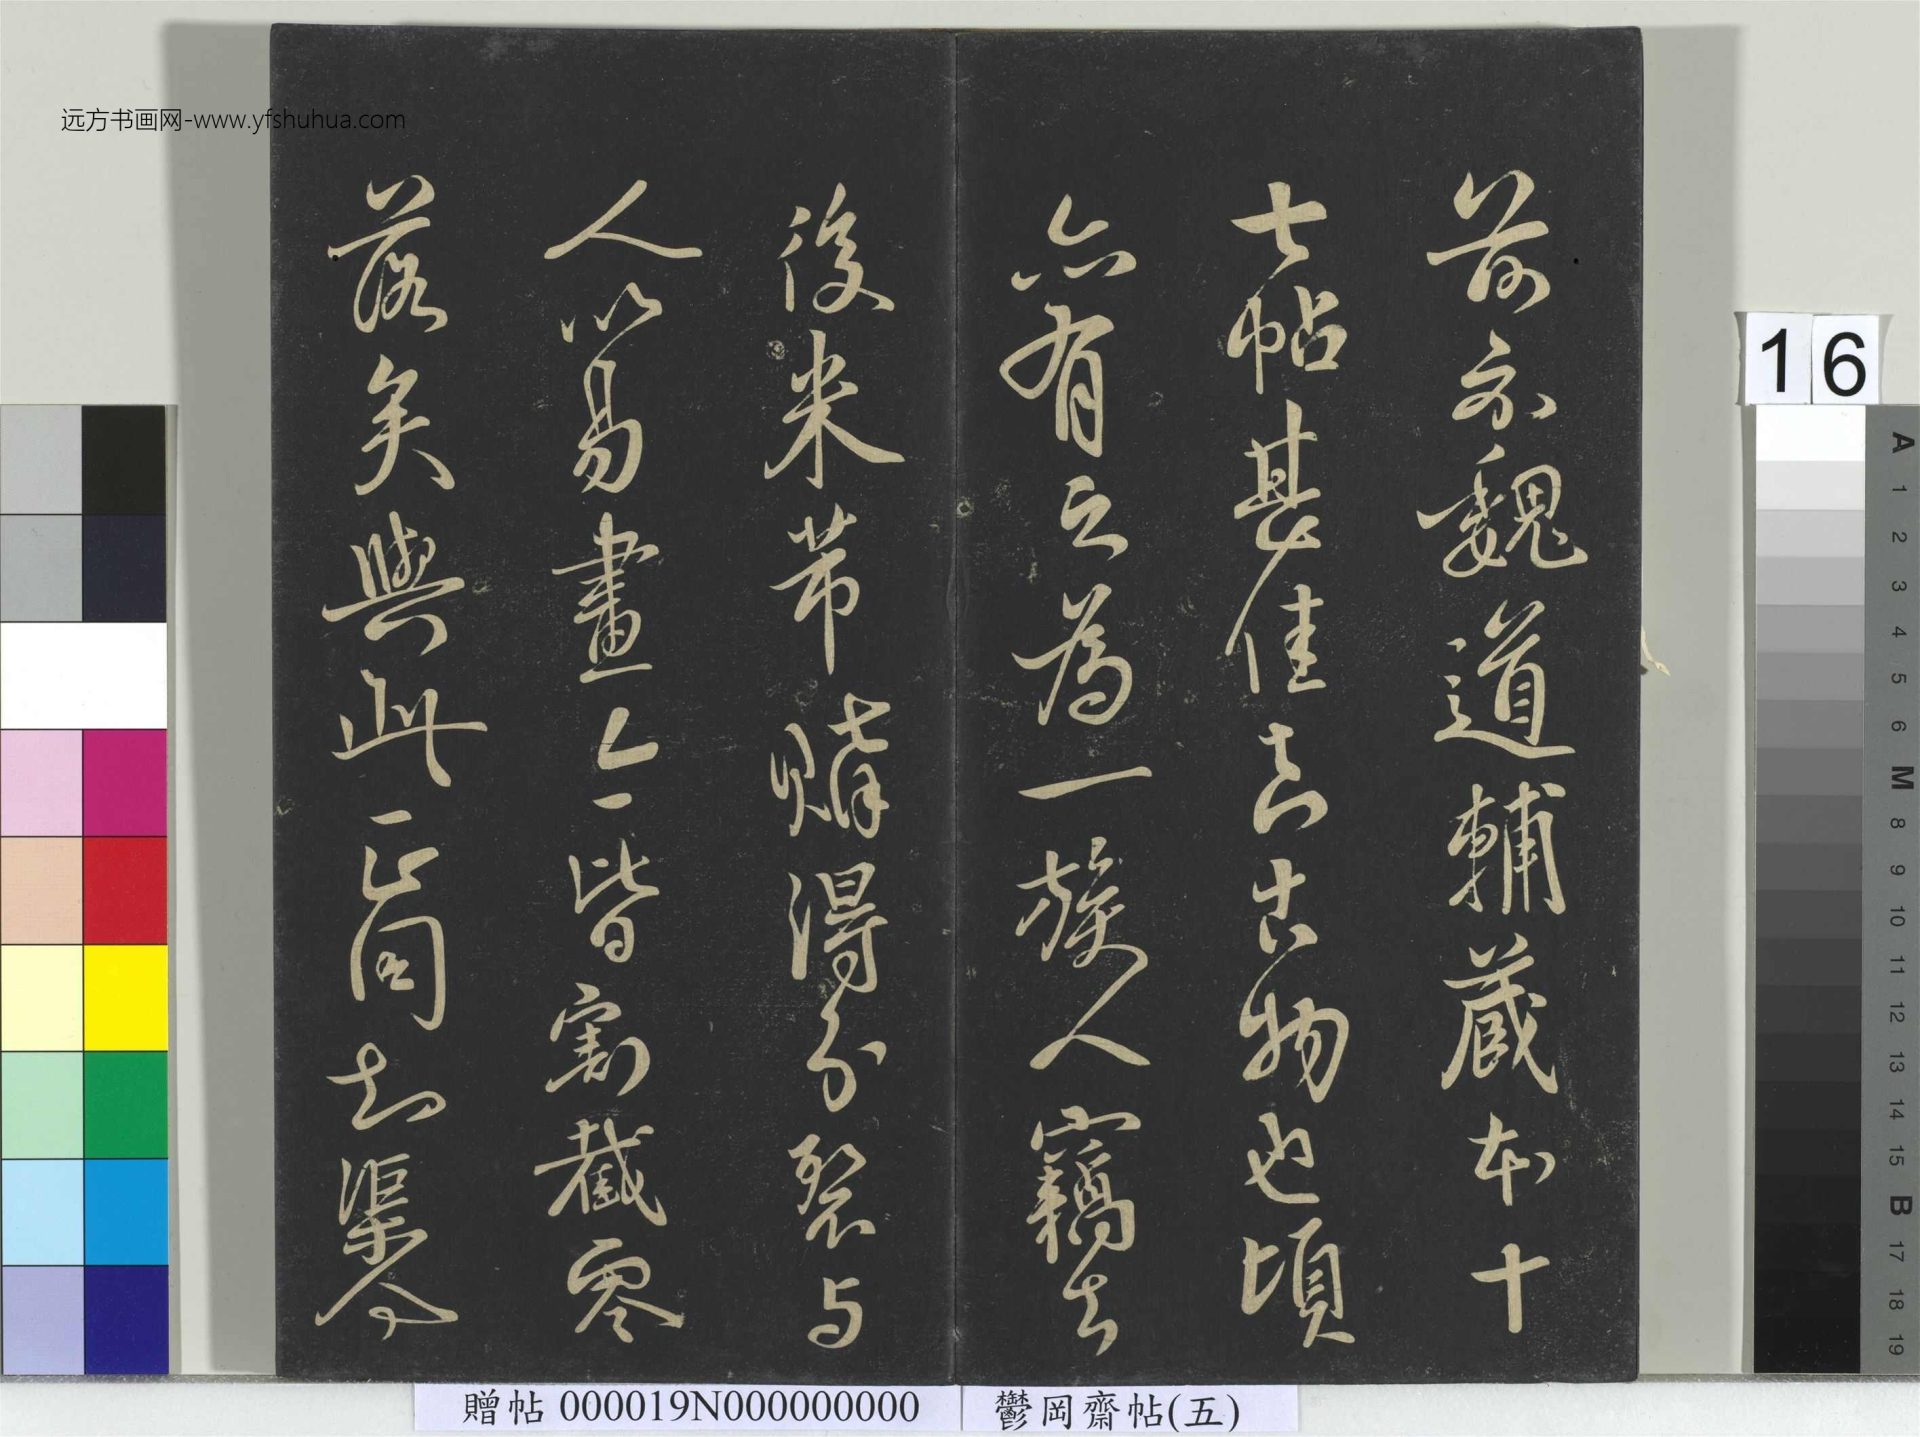 远方书画网-www.yfshuhua.com
前示魏道輔藏本十
七帖甚佳真古物也頃
亦有之為一族人竊去
後米芾購得分裂与
人以易畫今一皆割截零
落矣與此正同知渠今
16
A 1 2 3 4 5 6 M 8 9 10 11 12 13 14 15 B 17 18 19
贈帖 000019N000000000
鬱岡齋帖(五)